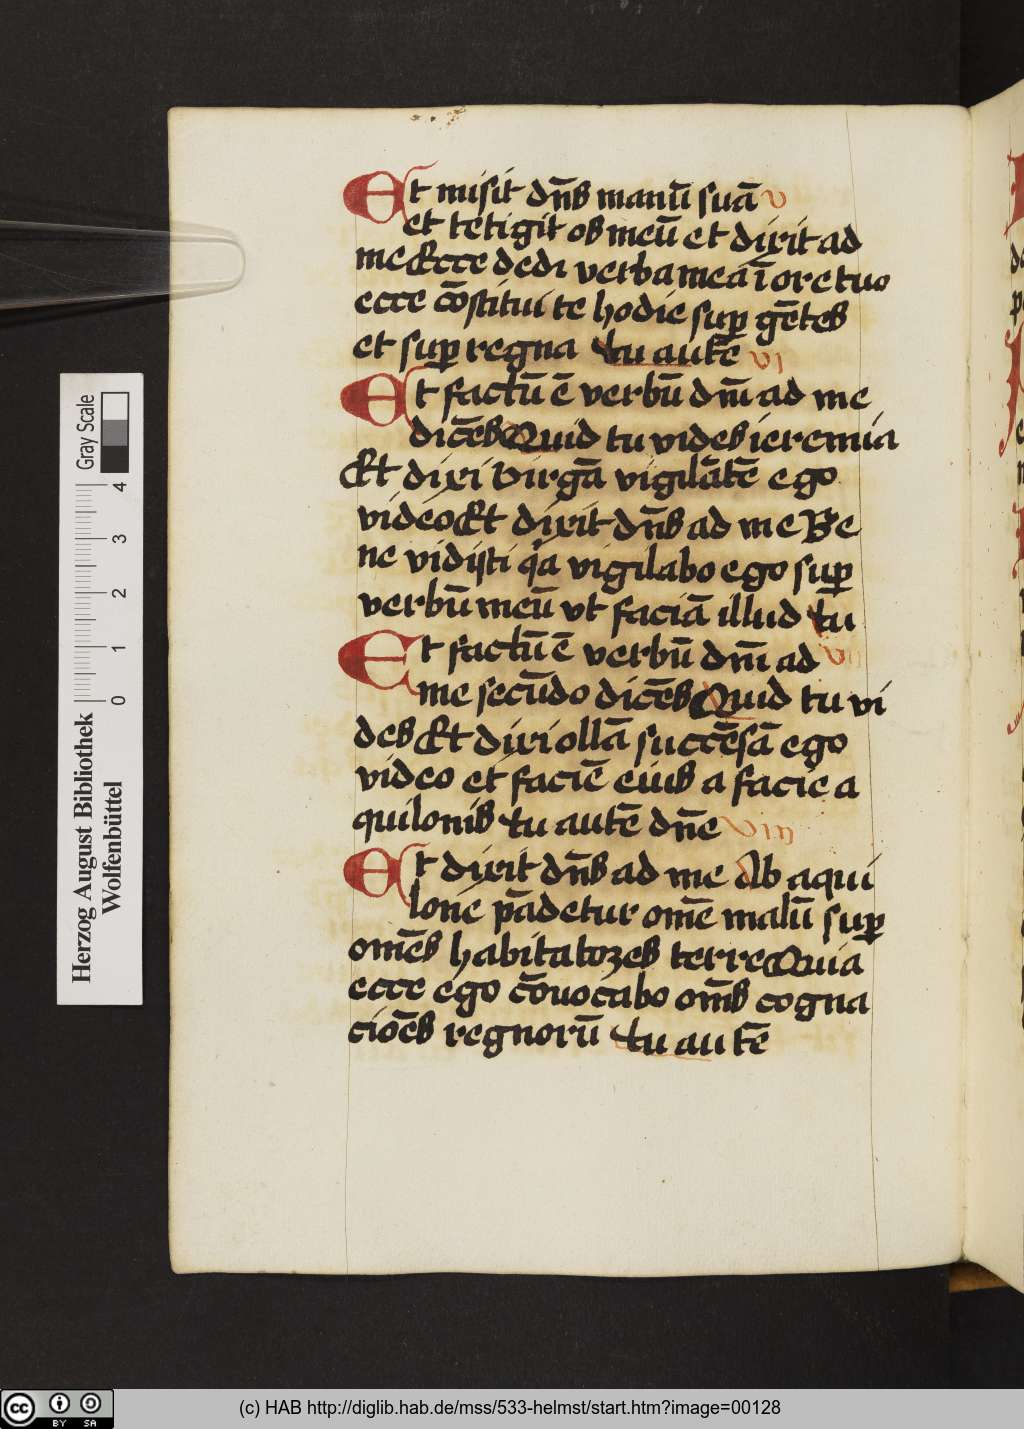 Et misit dn̄s manū suā v
et tetigit os meū et dixit ad
me Ecce dedi verba mea ī ore tuo
ecce cōstitui te hodie suꝑ gētes
et suꝑ regna tu autē vi
Et factū ē verbū dn̄i ad me
dicēs Quid tu vides ieremia
Et dixi Virgā vigilātē ego
video Et dixit dn̄s ad me Be
ne vidisti qͣa vigilabo ego suꝑ
verbū meū vt faciā illud tu
Et factū ē verbū dn̄i ad vii
me secūdo dicēs Quid tu vi
des Et dixi ollā succēsā ego
video et faciē eius a facie a
quilonis tu autē dn̄e viii
Et dixit dn̄s ad me Ab aqui
lone pādetur omē malū suꝑ
omēs habitatores terre Quia
ecce ego cōuocabo om̄s cogna
cioēs regnorū tu autē
Gray Scale
0 1 2 3 4
Herzog August Bibliothek
Wolfenbüttel
cc BY SA
(c) HAB http://diglib.hab.de/mss/533-helmst/start.htm?image=00128